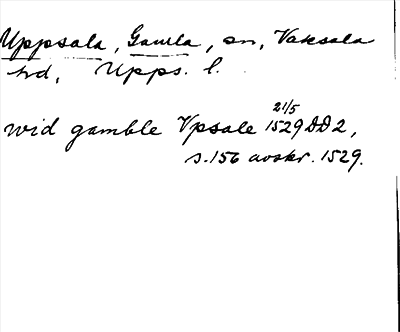 Uppsala, Gamla, sn, Vaksala
hd, Upps. l.
wid gamble Vpsale 21/5 1529 DD 2,
s. 156 avskr. 1529.